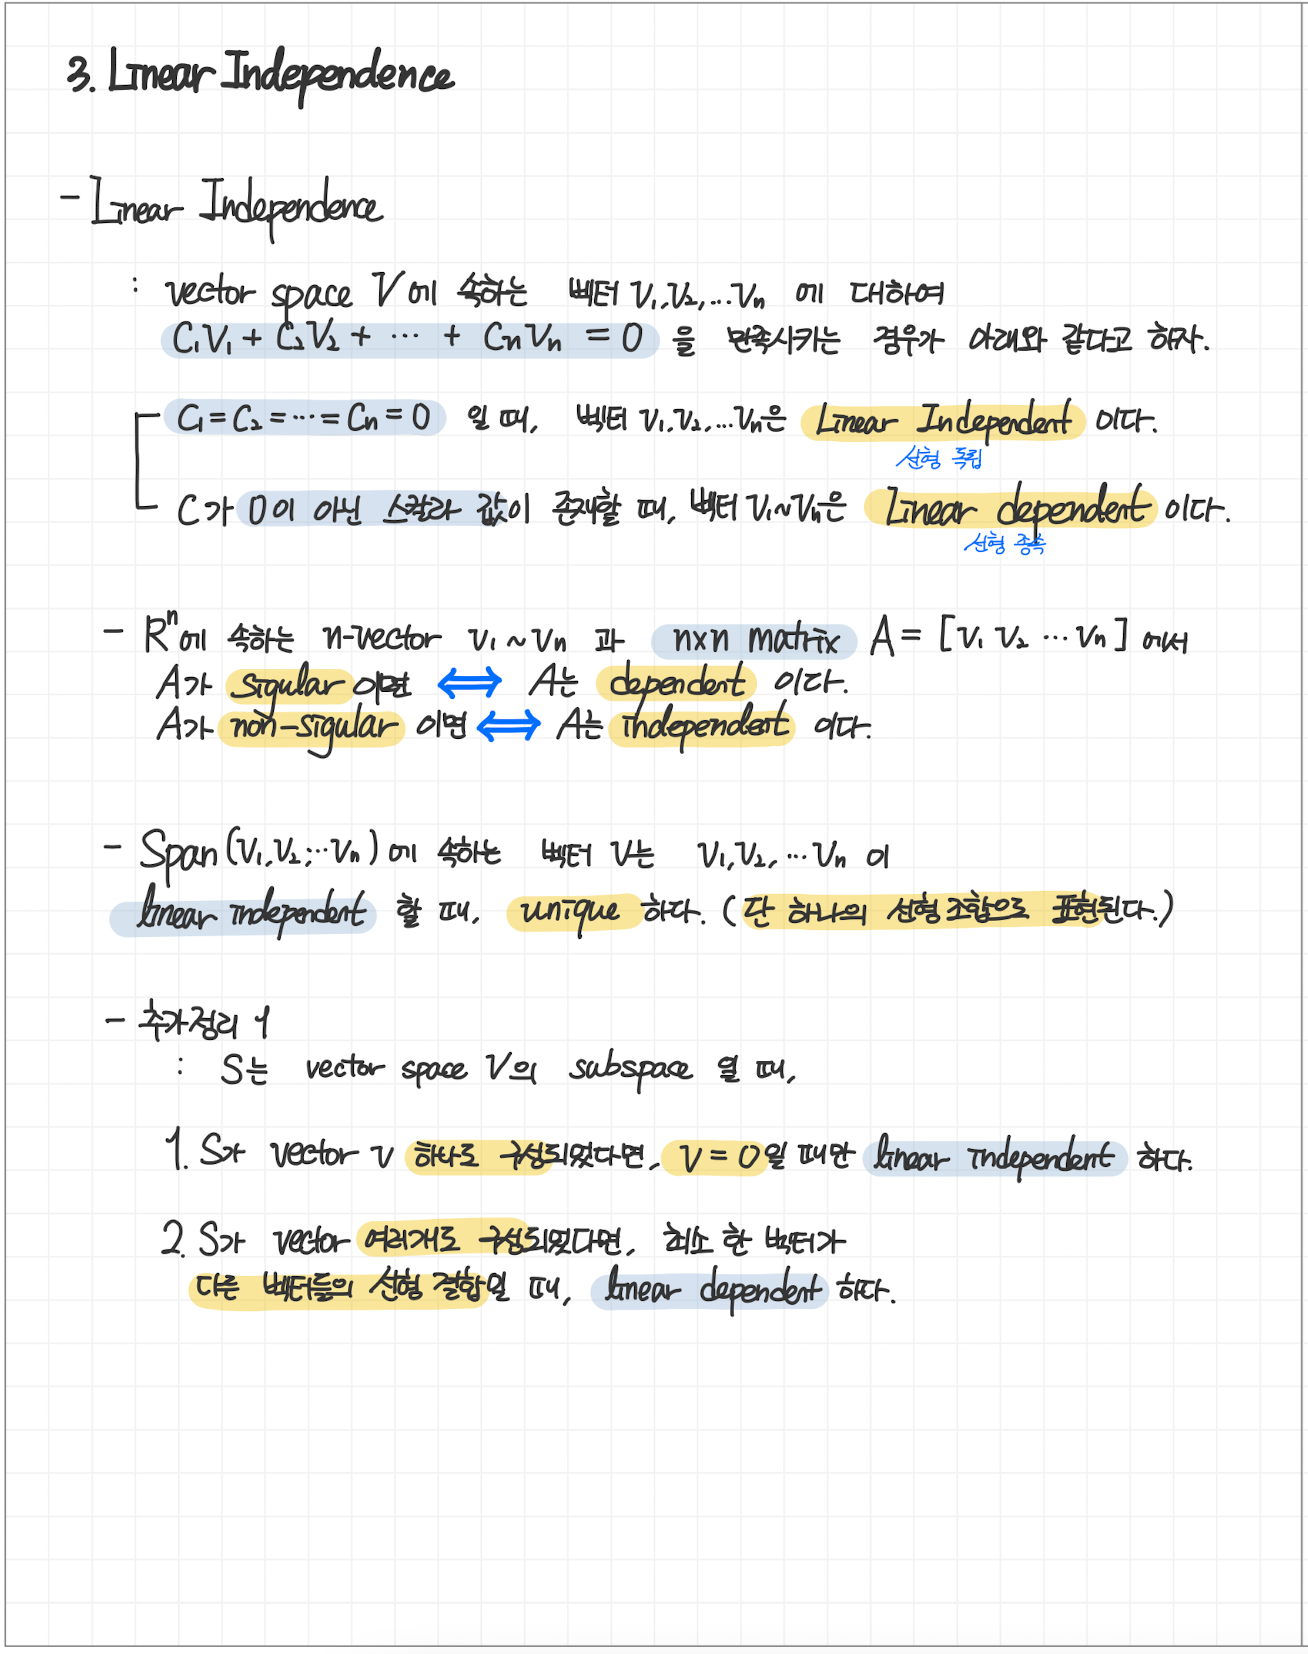 3. Linear Independence
- Linear Independence
: vector space V에 속하는 벡터 v₁,v₂,...vₙ 에 대하여
C₁V₁ + C₂V₂ + ... + CₙVₙ = 0 을 만족시키는 경우가 아래와 같다고 하자.
C₁ = C₂ = ... = Cₙ = 0 일 때, 벡터 v₁,v₂,...vₙ은 Linear Independent 이다.
선형 독립
C가 0이 아닌 스칼라 값이 존재할 때, 벡터 v₁~vₙ은 Linear dependent 이다.
선형 종속
- Rⁿ에 속하는 n-vector v₁ ~ vₙ 과 nxn matrix A = [v₁ v₂ ... vₙ] 에서
A가 sigular 이면 ⟺ A는 dependent 이다.
A가 non-sigular 이면 ⟺ A는 independent 이다.
- Span(v₁,v₂,...vₙ)에 속하는 벡터 v는 v₁,v₂,...vₙ 이
linear independent 할 때, unique 하다. (단 하나의 선형 조합으로 표현된다.)
- 추가정리 1
: S는 vector space V의 subspace 일 때,
1. S가 vector v 하나로 구성되었다면, v = 0일 때만 linear independent 하다.
2. S가 vector 여러개로 구성되있다면, 최소 한 벡터가
다른 벡터들의 선형 결합일 때, linear dependent 하다.